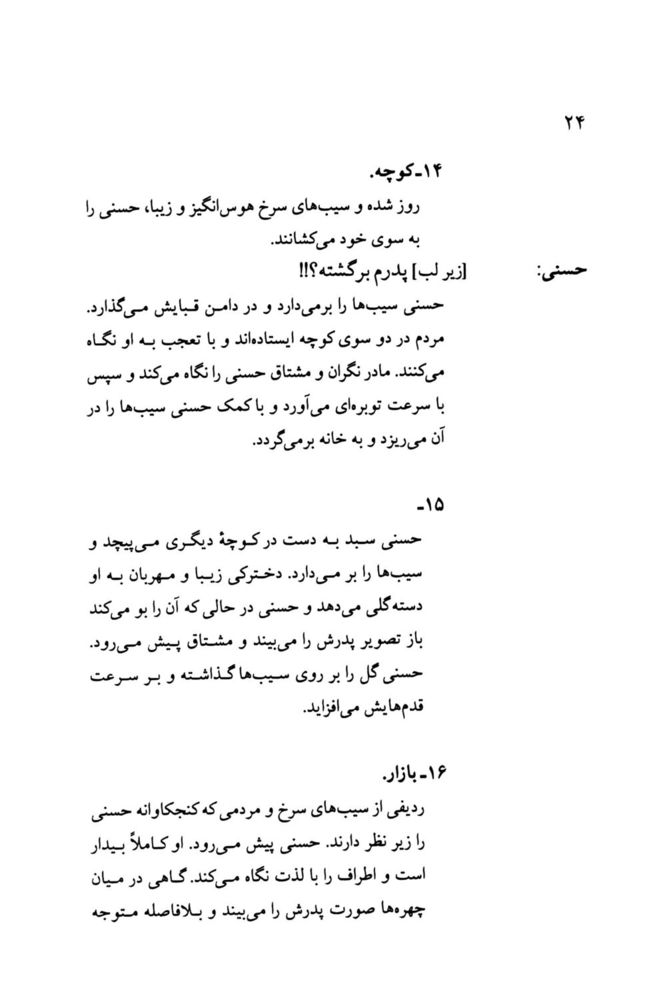 ۲۴
۱۴ـ کوچه.
روز شده و سیب‌های سرخ هوس‌انگیز و زیبا، حسنی را
به سوی خود می‌کشانند.
حسنی: [زیر لب] پدرم برگشته؟!!
حسنی سیب‌ها را برمی‌دارد و در دامن قبایش می‌گذارد.
مردم در دو سوی کوچه ایستاده‌اند و با تعجب به او نگاه
می‌کنند. مادر نگران و مشتاق حسنی را نگاه می‌کند و سپس
با سرعت توبره‌ای می‌آورد و با کمک حسنی سیب‌ها را در
آن می‌ریزد و به خانه برمی‌گردد.
۱۵ـ
حسنی سبد به دست در کوچهٔ دیگری می‌پیچد و
سیب‌ها را بر می‌دارد. دخترکی زیبا و مهربان به او
دسته‌گلی می‌دهد و حسنی در حالی که آن را بو می‌کند
باز تصویر پدرش را می‌بیند و مشتاق پیش می‌رود.
حسنی گل را بر روی سیب‌ها گذاشته و بر سرعت
قدم‌هایش می‌افزاید.
۱۶ـ بازار.
ردیفی از سیب‌های سرخ و مردمی که کنجکاوانه حسنی
را زیر نظر دارند. حسنی پیش می‌رود. او کاملاً بیدار
است و اطراف را با لذت نگاه می‌کند. گاهی در میان
چهره‌ها صورت پدرش را می‌بیند و بلافاصله متوجه